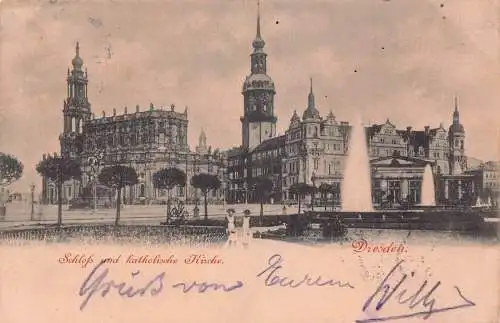 Dresden.
Schloß und katholische Kirche.
Gruß von Eurem Willy